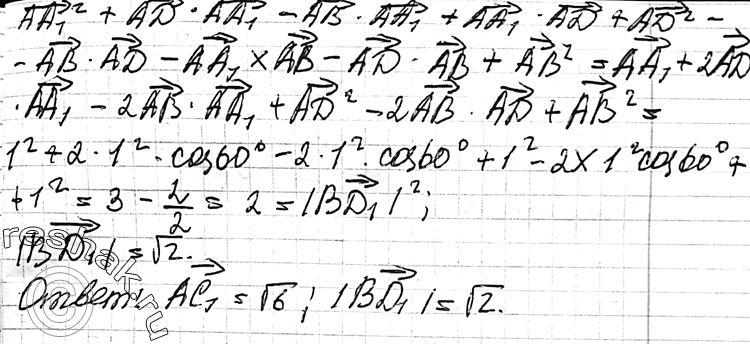 $\overrightarrow{AA_1}^2 + \overrightarrow{AD} \cdot \overrightarrow{AA_1} - \overrightarrow{AB} \cdot \overrightarrow{AA_1} + \overrightarrow{AA_1} \cdot \overrightarrow{AD} + \overrightarrow{AD}^2 -$
$- \overrightarrow{AB} \cdot \overrightarrow{AD} - \overrightarrow{AA_1} \times \overrightarrow{AB} - \overrightarrow{AD} \cdot \overrightarrow{AB} + \overrightarrow{AB}^2 = \overrightarrow{AA_1} + 2\overrightarrow{AD}$
$\cdot \overrightarrow{AA_1} - 2\overrightarrow{AB} \cdot \overrightarrow{AA_1} + \overrightarrow{AD}^2 - 2\overrightarrow{AB} \cdot \overrightarrow{AD} + \overrightarrow{AB}^2 =$
$1^2 + 2 \cdot 1^2 \cdot \cos 60^0 - 2 \cdot 1^2 \cdot \cos 60^0 + 1^2 - 2 \times 1^2 \cos 60^0 +$
$+ 1^2 = 3 - \frac{2}{2} = 2 = |\overrightarrow{BD_1}|^2;$
$|\overrightarrow{BD_1}| = \sqrt{2}.$
Ответ: $\overrightarrow{AC_1} = \sqrt{6}; |\overrightarrow{BD_1}| = \sqrt{2}.$
reshak.ru